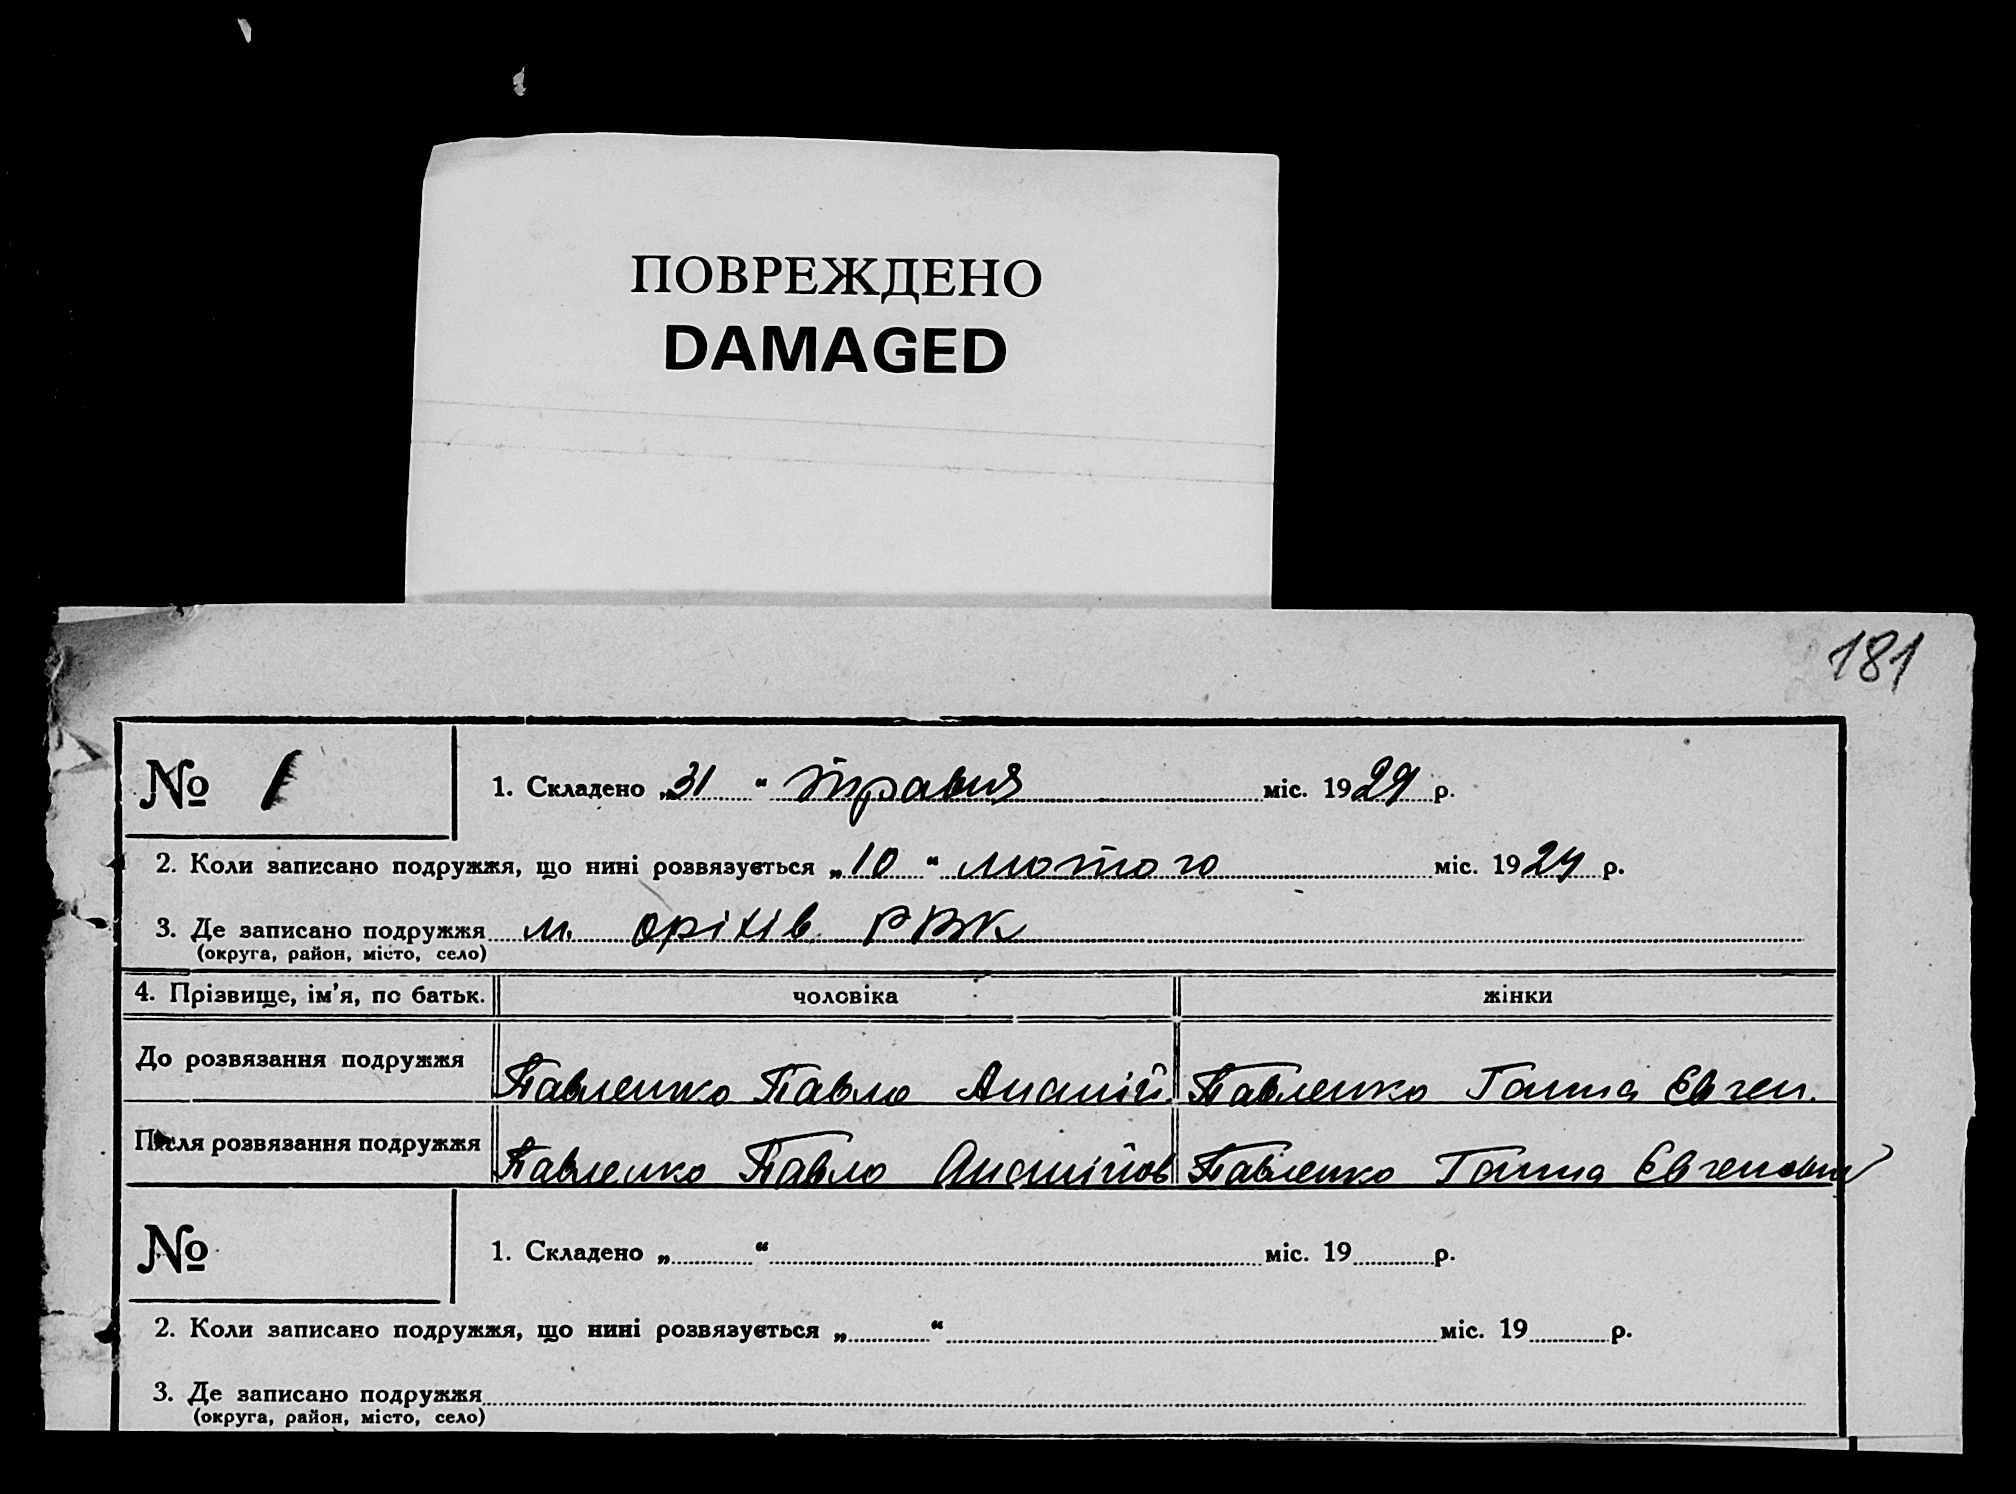 ПОВРЕЖДЕНО
DAMAGED
181
№ 1
1. Складено „31“ травня міс. 1929 р.
2. Коли записано подружжя, що нині розвязується „10“ лютого міс. 1924 р.
3. Де записано подружжя м. Оріхів РВК
(округа, район, місто, село)
4. Прізвище, ім'я, по батьк. чоловіка жінки
До розвязання подружжя Павленко Павло Ананій. Павленко Ганна Євген.
Після розвязання подружжя Павленко Павло Ананійов Павленко Ганна Євгеновн
№
1. Складено „ “ міс. 19 р.
2. Коли записано подружжя, що нині розвязується „ “ міс. 19 р.
3. Де записано подружжя
(округа, район, місто, село)